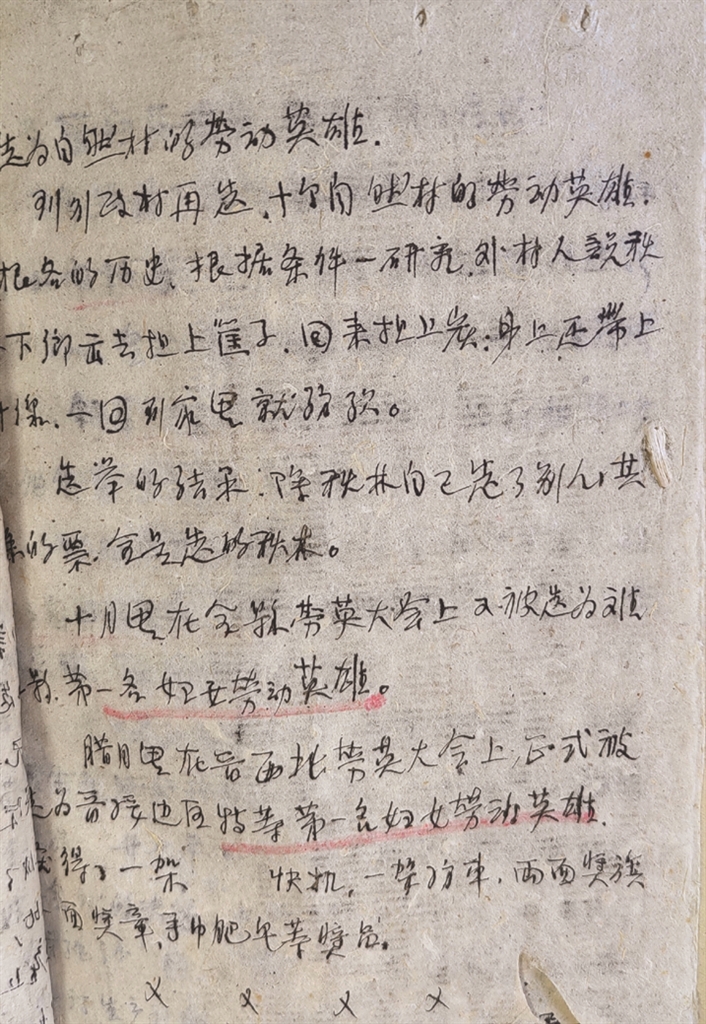 选为自然村的劳动英雄.
到行政村再选、十个自然村的劳动英雄.
根各的历史、根据条件一研究,外村人説秋
下鄉去担上筐子、回来担上炭;身上还帶上
線、一回到家里就紡紡。
选举的结果:除秋林自己选了别人,其
的票、全是选的秋林。
十月里在全縣劳英大会上又被选为
縣、第一名妇女劳动英雄。
腊月里在晋西北劳英大会上,正式被
选为晋绥边区特等第一名妇女劳动英雄.
得了一架 快机,一架纺车,两面奖旗
面奖章,手巾肥皂等奖品。
× × × ×